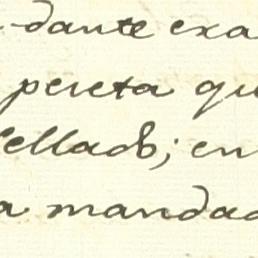 dante exa
pereta qu
ellado; en
a mandad